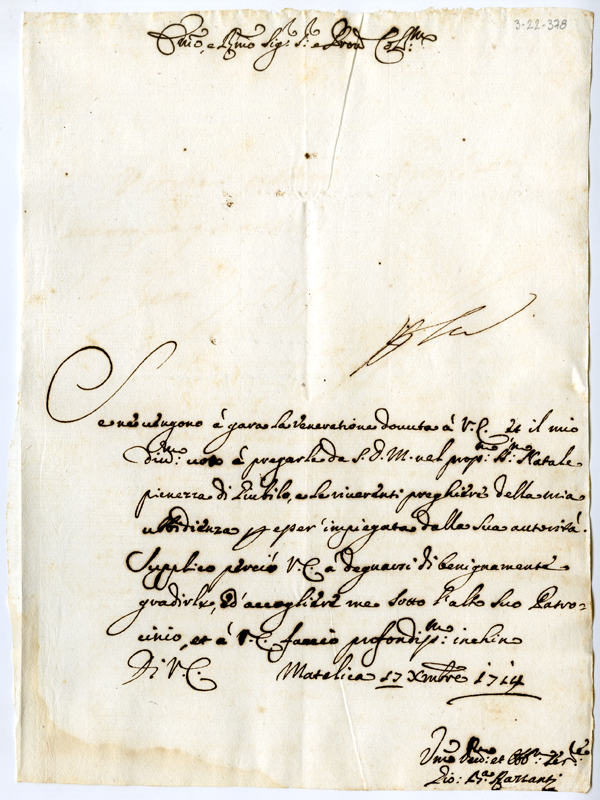 3-22-378
Em̃o, e Rm̃o Sig.r S.r e Pron Col.mo
Se ne vengono à gara la veneratione dovuta à V.E. et il mio
div.mo voto à pregarle da S.D.M. nel pross.mo S.mo Natale
pienezza di Giubilo, e le riverenti preghiere della mia
ubbidienza p esser impiegata dalla Sua autorità.
Supplico perciò V.E. à degnarsi di benignamente
gradirle, ed' accogliere me sotto l'alto suo Patro=
cinio, et à V.E. faccio profondiss.mo inchino
Di V.E. Matelica 17 Xmbre 1714
Um̃o Dev.mo et Obb.mo Ser.re
Gio: